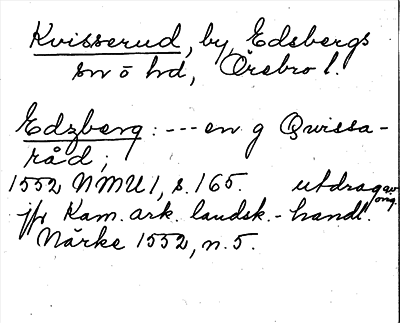 Kvisserud, by, Edsbergs
sn o hd, Örebro l.
Edzberg: --- en g Qvissa-
råd;
1552 NMU 1, s. 165. utdrag av
orig.
jfr Kam. ark. landsk.-handl.
Närke 1552, n. 5.